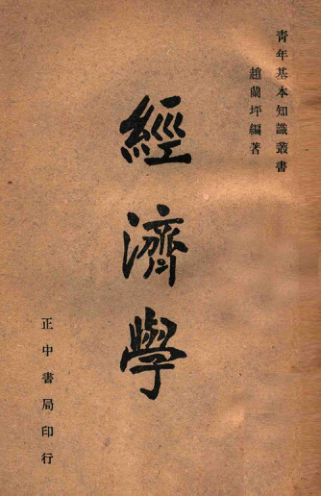 青年基本知識叢書
趙蘭坪編著
經濟學
正中書局印行